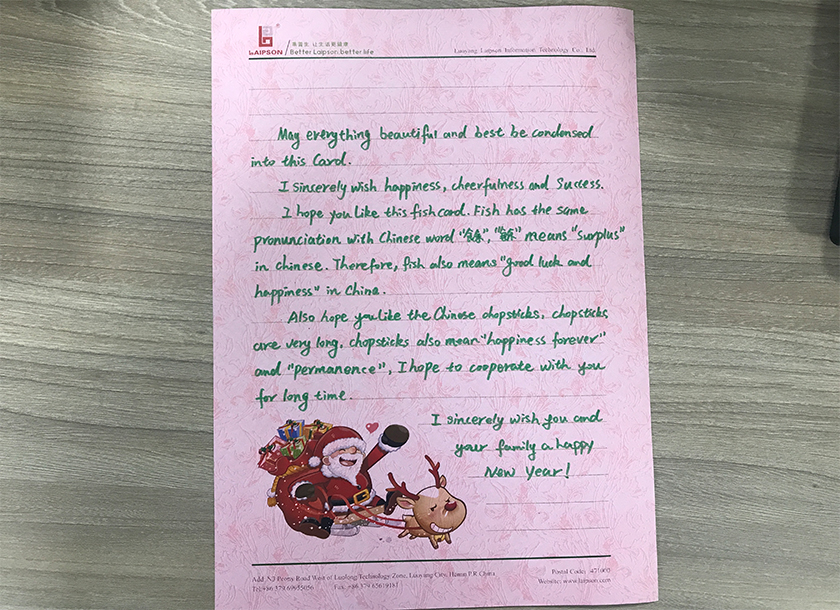 LAIPSON ®
Better Laipson, better life
Luoyang Laipson Information Technology Co., Ltd.
May everything beautiful and best be condensed
into this Card.
I sincerely wish happiness, cheerfulness and Success.
I hope you like this fishcard. Fish has the same
pronunciation with Chinese word "餘", "餘" means "surplus"
in chinese. Therefore, fish also means "good luck and
happiness" in China.
Also hope you like the Chinese chopsticks, chopsticks
are very long, chopsticks also mean "happiness forever"
and "permanence", I hope to cooperate with you
for long time.
I sincerely wish you and
your family a happy
New Year!
Road West of Luolong Technology Zone, Luoyang City, Henan P.R.China
Postal Code: 471000
Tel:+86 379
Fax: +86 379
Website: www.laipson.com